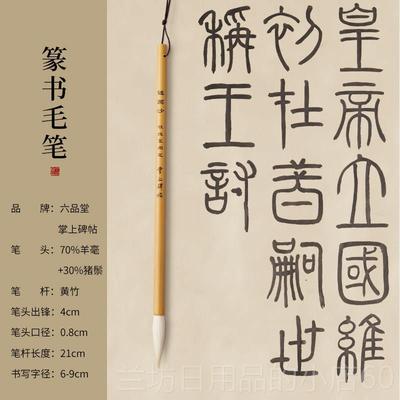 篆书毛笔
品 牌：六品堂
掌上碑帖
笔 头：70%羊毫
+30%猪鬃
笔 杆：黄竹
笔头出锋：4cm
笔头口径：0.8cm
笔杆长度：21cm
书写字径：6-9cm
皇帝立國維
初在昔嗣世
稱王討
兰坊日用品的小店60